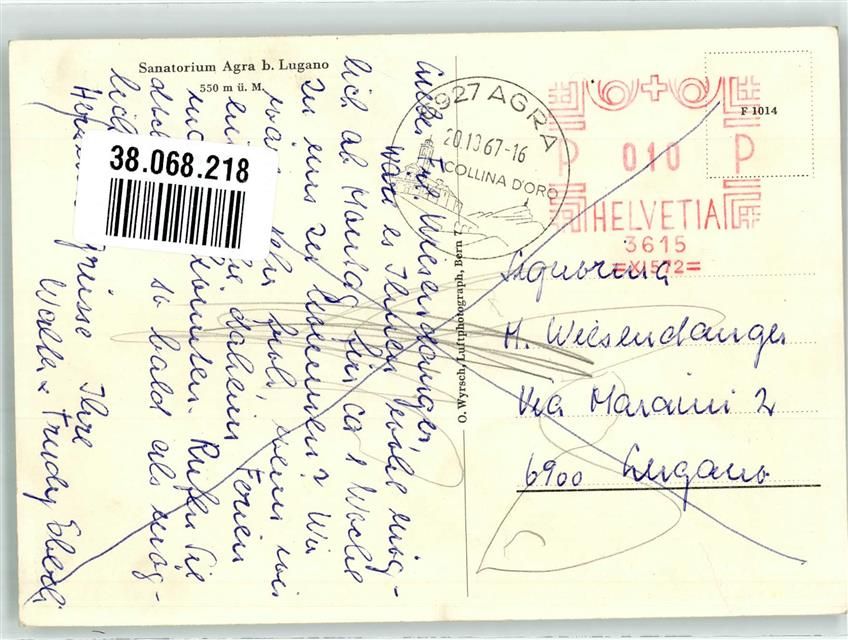 Sanatorium Agra b. Lugano
550 m ü. M.
38.068.218
Liebe Frl. Wiesendanger
Wäre es Ihnen wohl mög-
lich ab Montag für ca 1 Woche
zu uns zu kommen? Wir
wären sehr froh, wenn wir
daheim Ferien
könnten. Rufen Sie
so bald als mög-
lich
grüsse Ihre
Walter & Trudy Eberli
O. Wyrsch, Luftphotograph, Bern 7
6927 AGRA
20.10.67-16
COLLINA D'ORO
F 1014
P 010 P
HELVETIA
3615
Signorina
H. Wiesendanger
Via Maraini 2
6900 Lugano